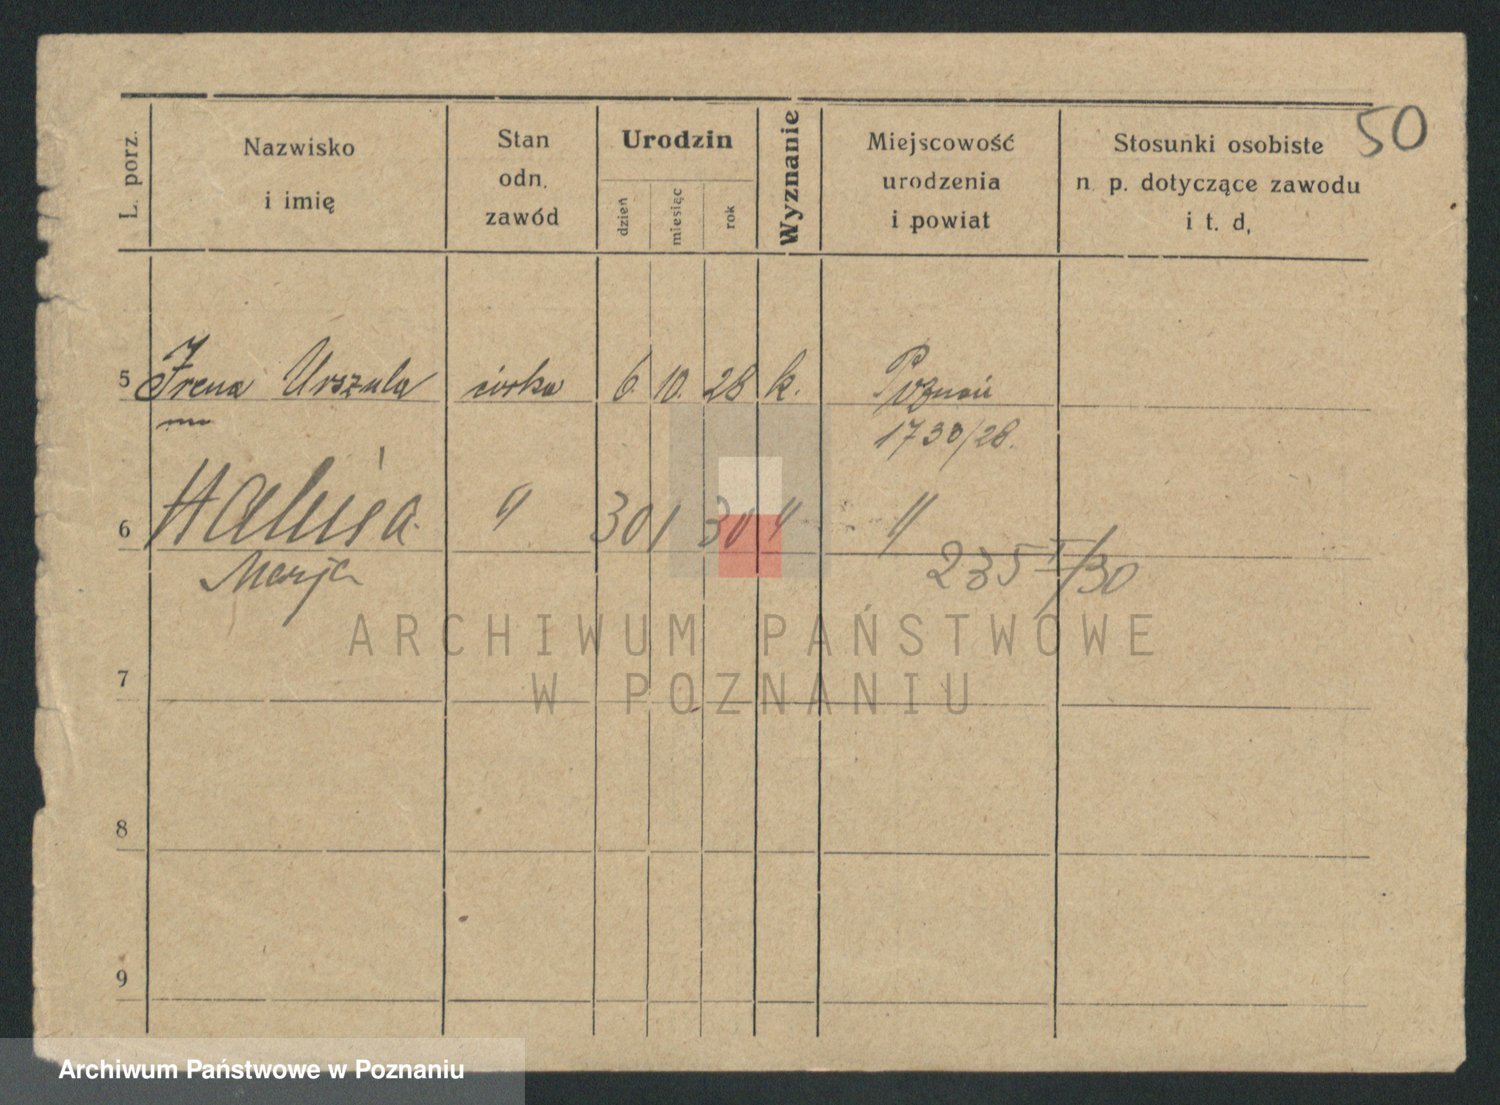 50
L. porz.
Nazwisko
i imię
Stan
odn.
zawód
Urodzin
dzień
miesiąc
rok
Wyznanie
Miejscowość
urodzenia
i powiat
Stosunki osobiste
n. p. dotyczące zawodu
i t. d.
5 Irena Urszula córka 6. 10. 28 k. Poznań
1730/28.
6 Halina " 30 1 30 " "
Marja 235 I/30
7
8
9
ARCHIWUM PAŃSTWOWE
W POZNANIU
Archiwum Państwowe w Poznaniu